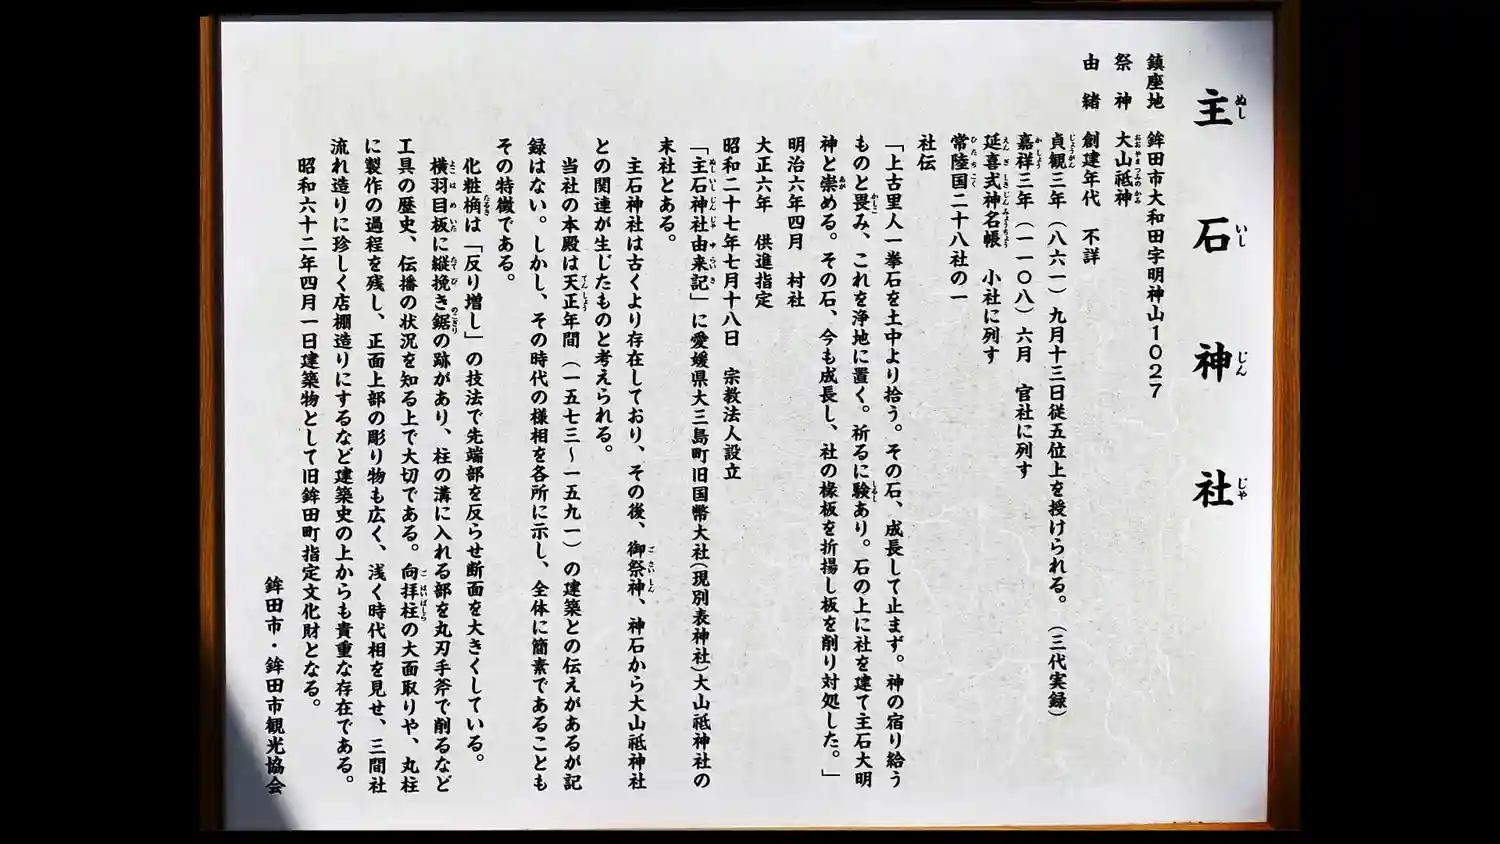 主石神社
鎮座地　鉾田市大和田字明神山1027
祭神　大山祗神
由緒　創建年代　不詳
貞観三年（八六一）九月十三日従五位上を授けられる。（三代実録）
嘉祥三年（一一〇八）六月　官社に列す
延喜式神名帳　小社に列す
常陸国二十八社の一
社伝
「上古里人一拳石を土中より拾う。その石、成長して止まず。神の宿り給う
ものと畏み、これを浄地に置く。祈るに験あり。石の上に社を建て主石大明
神と崇める。その石、今も成長し、社の椽板を折揚し板を削り対処した。」
明治六年四月　村社
大正六年　供進指定
昭和二十七年七月十八日　宗教法人設立
「主石神社由来記」に愛媛県大三島町旧国幣大社（現別表神社）大山祗神社の
末社とある。
主石神社は古くより存在しており、その後、御祭神、神石から大山祗神社
との関連が生じたものと考えられる。
当社の本殿は天正年間（一五七三～一五九一）の建築との伝えがあるが記
録はない。しかし、その時代の様相を各所に示し、全体に簡素であることも
その特徴である。
化粧桷は「反り増し」の技法で先端部を反らせ断面を大きくしている。
横羽目板に縦挽き鋸の跡があり、柱の溝に入れる部を丸刃手斧で削るなど
工具の歴史、伝播の状況を知る上で大切である。向拝柱の大面取りや、丸柱
に製作の過程を残し、正面上部の彫り物も広く、浅く時代相を見せ、三間社
流れ造りに珍しく店棚造りにするなど建築史の上からも貴重な存在である。
昭和六十二年四月一日建築物として旧鉾田町指定文化財となる。
鉾田市・鉾田市観光協会